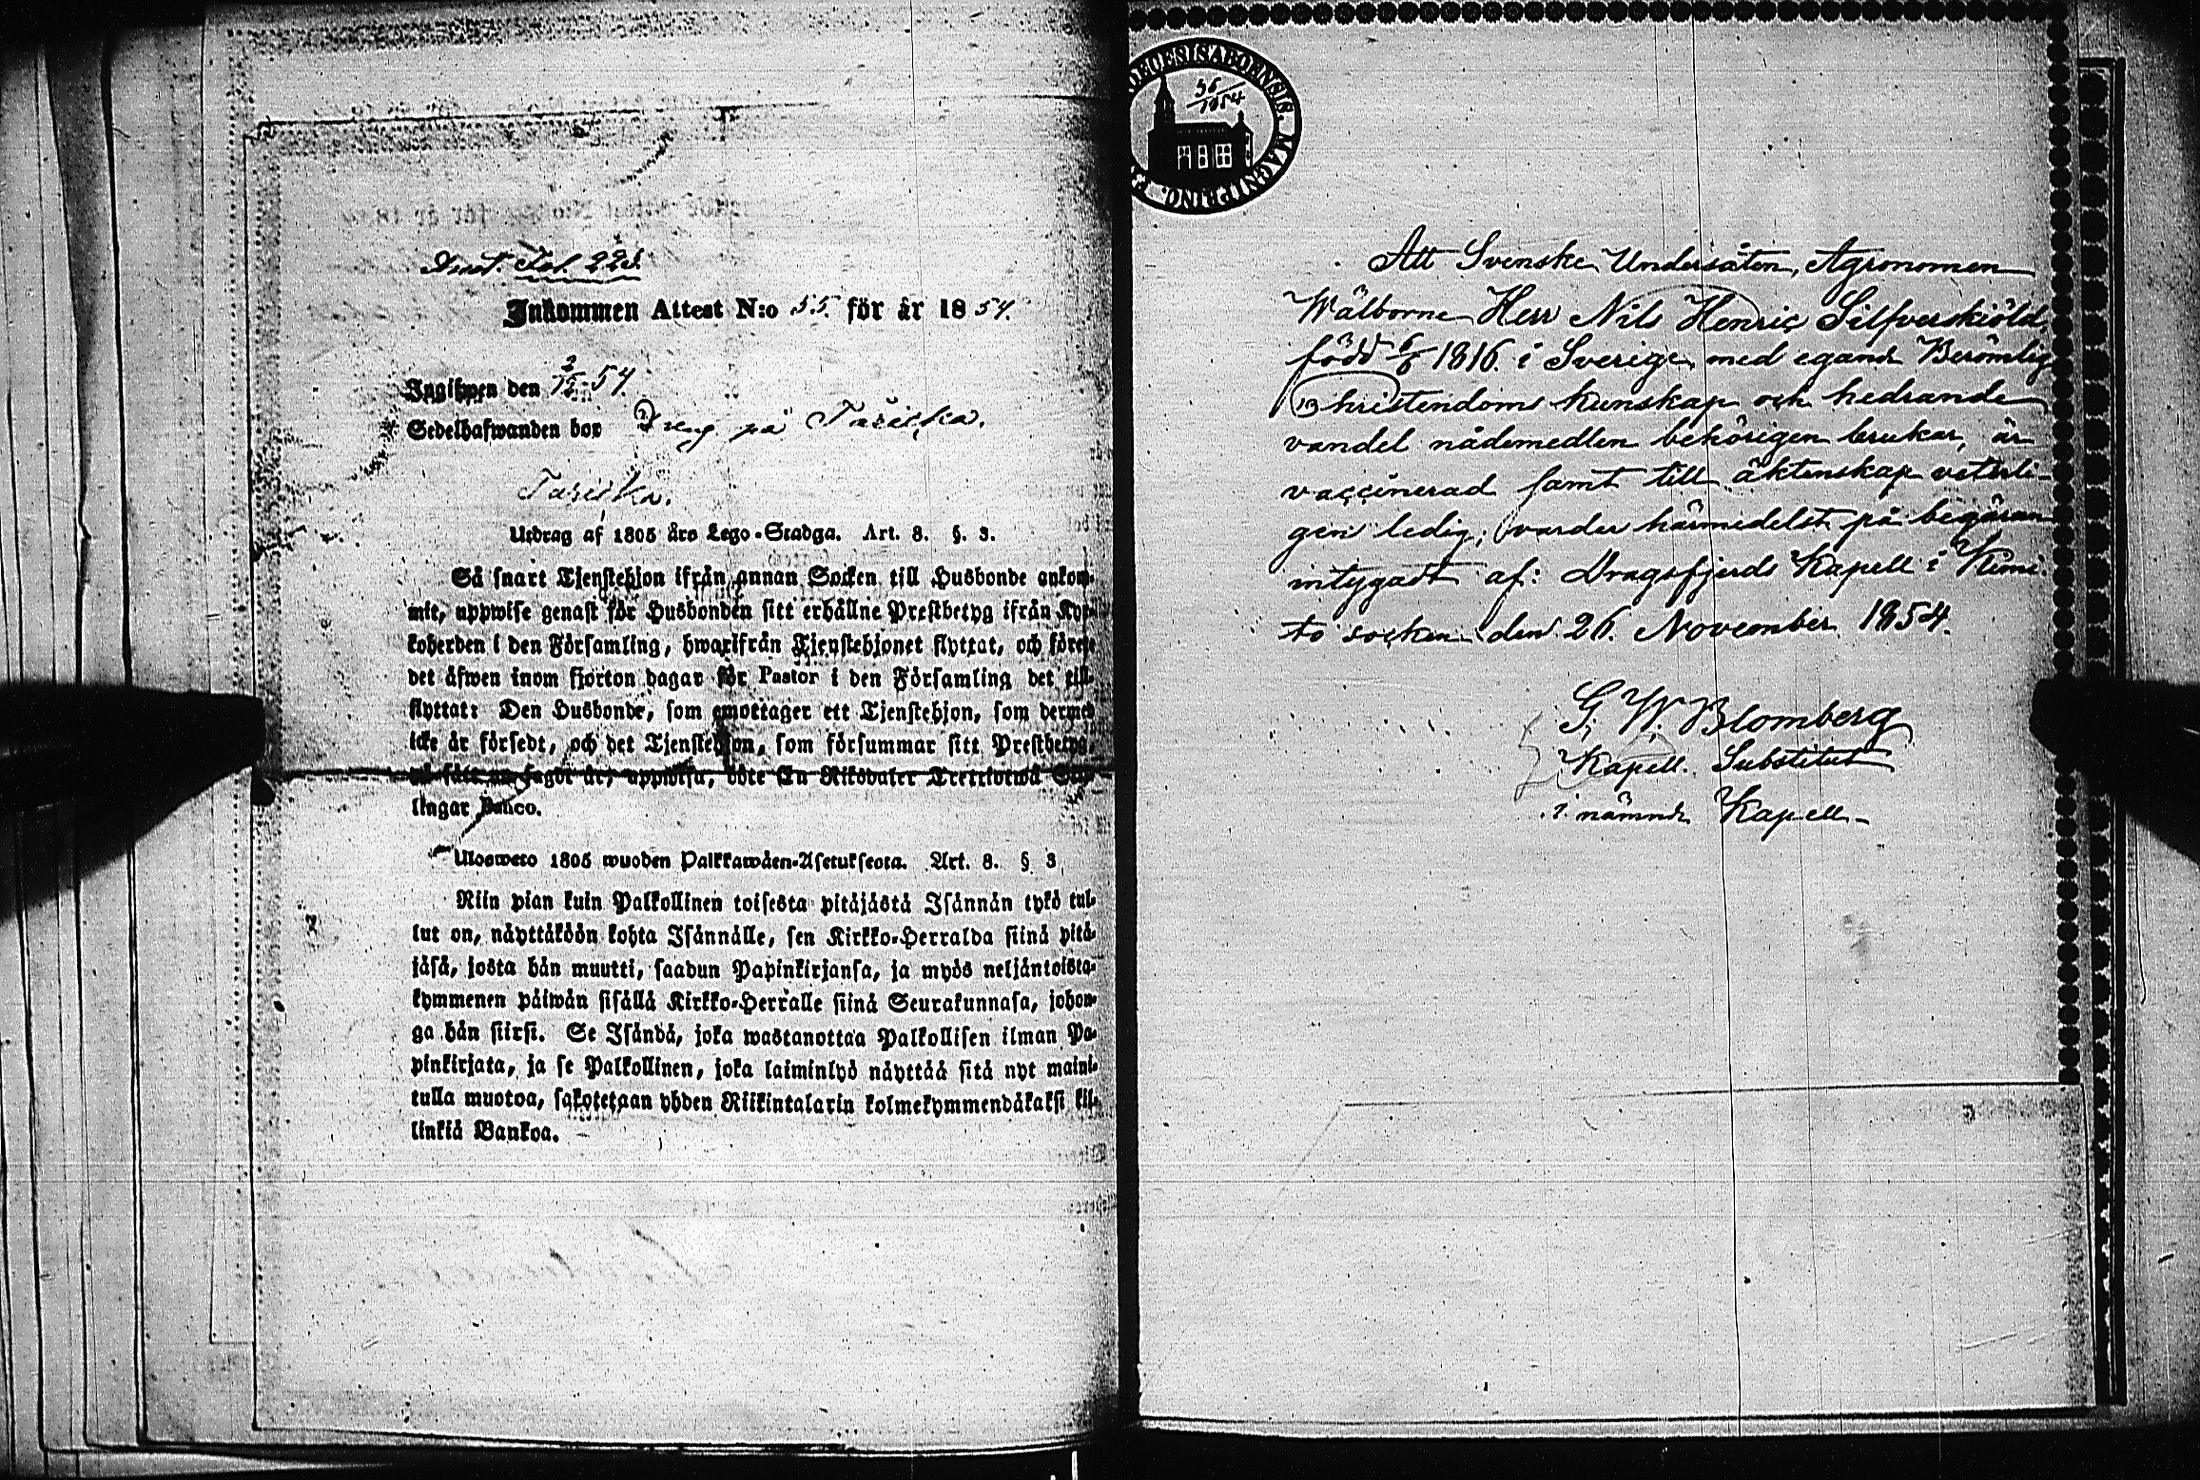 Anst. Fol. 228.
Inkommen Attest N:o 55. för år 1854.
Ingifwen den 2/12 54.
Sedelhafwanden bor Dreng på
Utdrag af 1805 års Lego-Stadga. Art. 8. §. 3.
Så snart Tjenstehjon ifrån annan Socken till Husbonde ankom-
mit, uppwise genast för Husbonden sitt erhållne Prestbetyg ifrån Kyr-
koherden i den Församling, hwarifrån Tjenstehjonet flyttat, och förete
det äfwen inom fjorton dagar för Pastor i den Församling det till-
flyttat: Den Husbonde, som emottager ett Tjenstehjon, som dermed
icke är försedt, och det Tjenstehjon, som försummar sitt Prestbetyg,
på sätt nu sagdt är, uppwisa, böte En Riksdaler Trettiotwå Skil-
lingar Banco.
Ulosweto 1805 wuoden Palkkawäen-Asetuksesta. Art. 8. § 3
Niin pian kuin Palkollinen toisesta pitäjästä Isännän tykö tul-
lut on, näyttäköön kohta Isännälle, sen Kirkko-Herralda siinä pitä-
jäsä, josta hän muutti, saadun Papinkirjansa, ja myös neljäntoista-
kymmenen päiwän sisällä Kirkko-Herralle siinä Seurakunnasa, johon-
ga hän siirsi. Se Isändä, joka wastanottaa Palkollisen ilman Pa-
pinkirjata, ja se Palkollinen, joka laiminlyö näyttää sitä nyt maini-
tulla muotoa, sakotetaan yhden Riikintalarin kolmekymmendäkaksi kil-
linkiä Bankoa.
DIOECESIS ABOENSIS. MAGNI PRINC. F
56/1854
Att Svenske Undersåten, Agronomen
Wälborne Herr Nils Henric Silfverskiöld,
född 6/6 1816. i Sverige, med egande Berömlig
Christendoms kunskap och hedrande
vandel nådemedlen behörigen brukar, är
vaccinerad samt till äktenskap veterli-
gen ledig; varder härmedelst på begäran
intygadt af: Dragsfjerds Kapell i Kimi-
to socken den 26. November 1854.
G. W. Blomberg
Kapell. Substitut
i nämnde Kapell